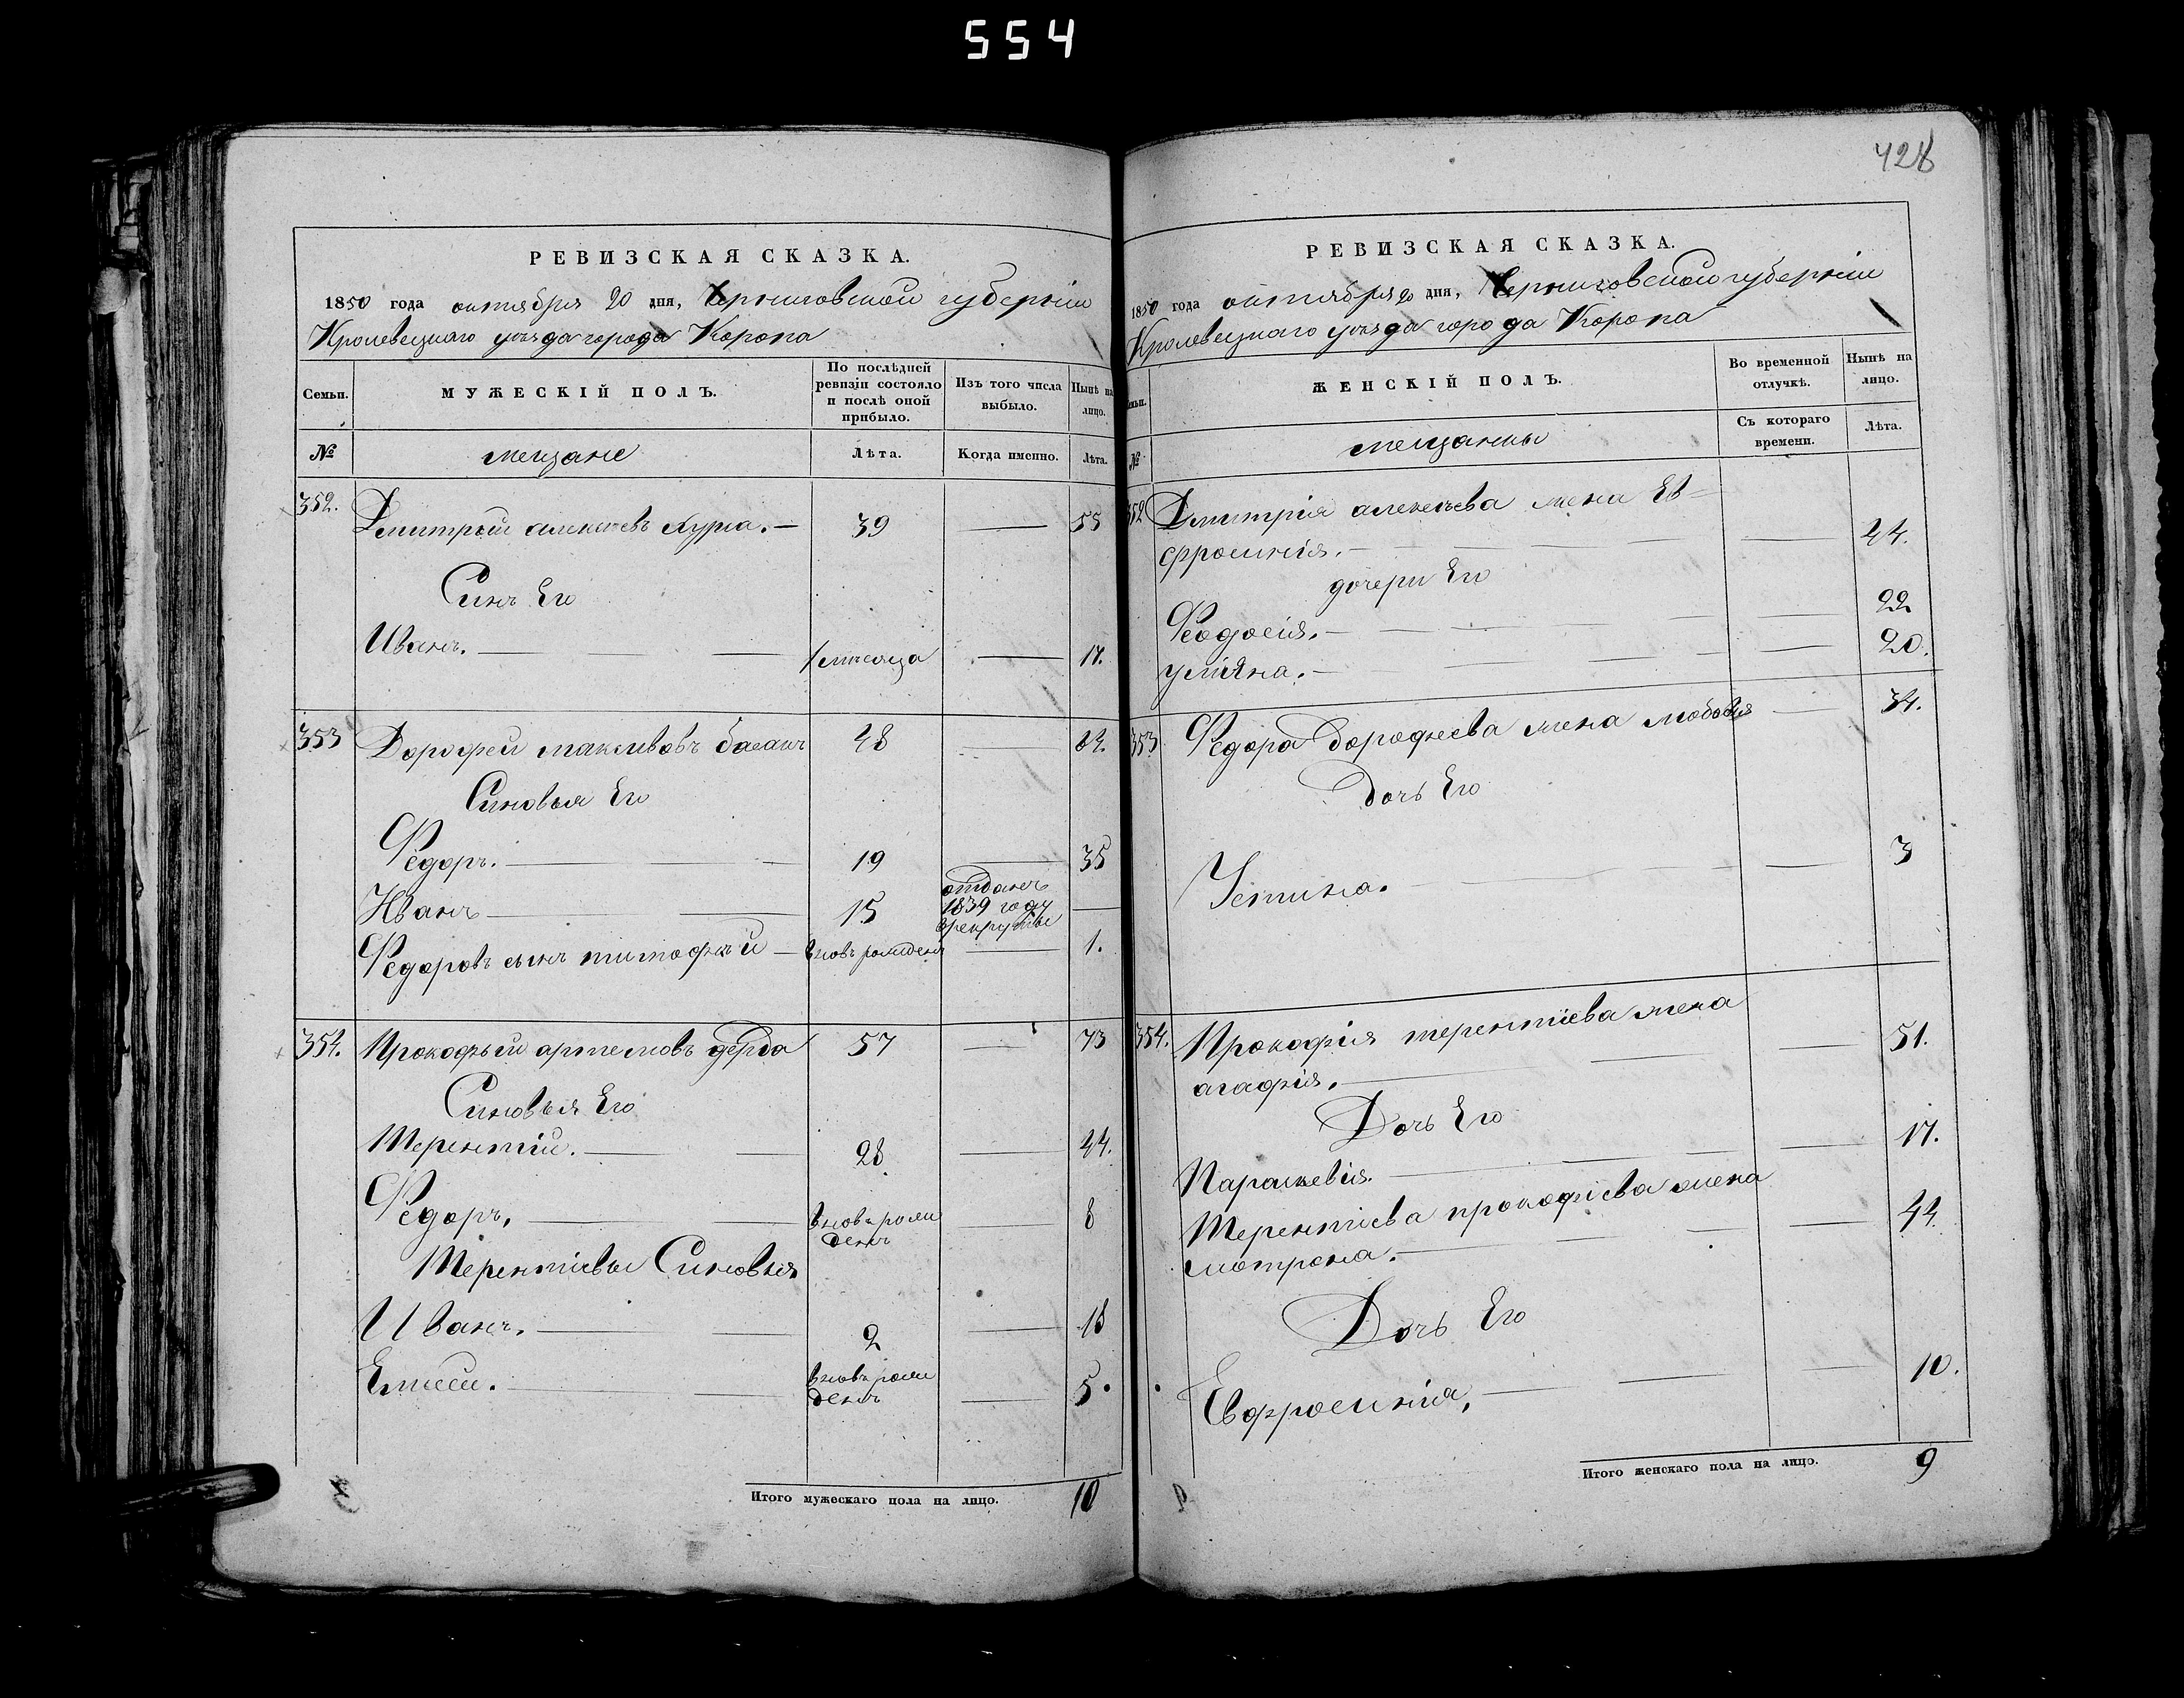 554
РЕВИЗСКАЯ СКАЗКА.
1850 года октября 20 дня, Черниговской губерніи
Кролевецкаго уѣзда города Коропа
Семьи.
МУЖЕСКІЙ ПОЛЪ.
По послѣдней
ревизіи состояло
и послѣ оной
прибыло.
Изъ того числа
выбыло.
Нынѣ на
лицо.
№
мещане
Лѣта.
Когда именно.
Лѣта.
352.
Дмитрій алексѣевъ
39
55
Синъ Его
Иванъ.
1 мѣсяца
17.
353
Дорофей
48
64.
Синовья Его
Федоръ.
19
35
Иванъ
15
отданъ
1839 году
врекруты
Федоровъ сынъ тимофѣй
вновь рожденъ
1.
354.
Прокофьій артемовъ
57
73
Синовья Его
Терентій.
28
44.
Федоръ,
вновь рож
денъ
8
Терентіевы Синовья
Иванъ.
2
18
Елисей.
вновь рож
денъ
5
Итого мужескаго пола на лицо.
10
428
РЕВИЗСКАЯ СКАЗКА.
1850 года октября 20 дня, Черниговской губерніи
Кролевецкаго уѣзда города Коропа
Семьи.
ЖЕНСКІЙ ПОЛЪ.
Во временной
отлучкѣ.
Нынѣ на
лицо.
№
мещанки
Съ котораго
времени.
Лѣта.
352
Дмитрія алексѣева жена Ев-
фросинія.
44.
дочери Его
Феодосія.
22
улiяна.
20.
353
Федора дорофеева жена любовія
34.
Дочь Его
Устина.
3
354.
Прокофія терентіева жена
агафія.
51.
Дочь Его
Параскевія.
17.
Терентіева прокофіева жена
мотрона.
44.
Дочь Его
Евфросинія,
10.
Итого женскаго пола на лицо.
9